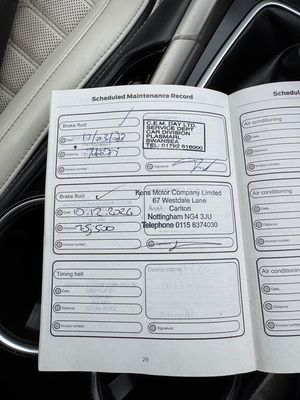 Scheduled Maintenance Record
Brake fluid
Date
Distance
Invoice number
C.E.M. DAY LTD
SERVICE DEPT
CAR DIVISION
PLASMARL
SWANSEA
TEL: 01792 616000
Signature
Brake fluid
Date 10.12.2024
Distance 25,500
Invoice number
Kens Motor Company Limited
67 Westdale Lane
Carlton
Nottingham NG4 3JU
Telephone 0115 8374030
Signature
Timing belt
Date
Distance
Invoice number
Signature
28
Air conditioning
Date
Distance
Invoice number
Air conditioning
Date
Distance
Invoice number
Air conditioning
Date
Distance
Invoice number